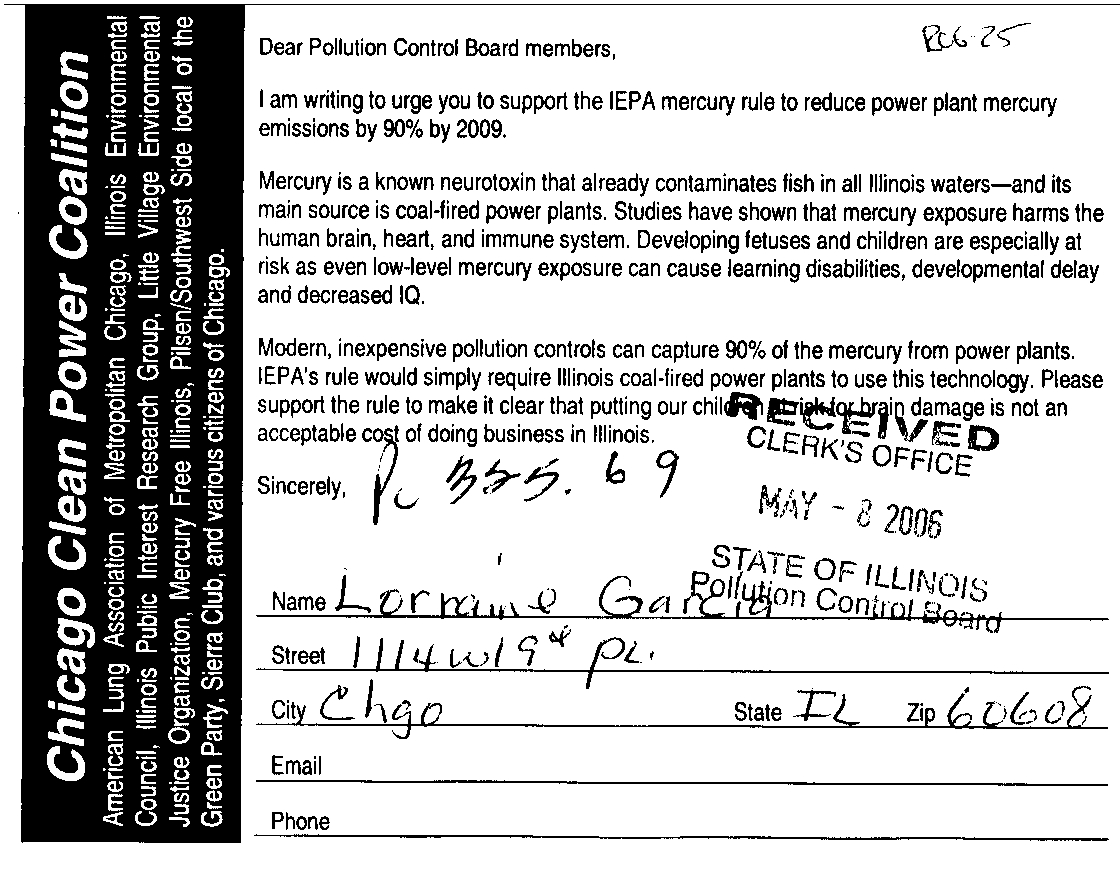 Chicago Clean Power Coalition
American Lung Association of Metropolitan Chicago, Illinois Environmental
Council, Illinois Public Interest Research Group, Little Village Environmental
Justice Organization, Mercury Free Illinois, Pilsen/Southwest Side local of the
Green Party, Sierra Club, and various citizens of Chicago.
Dear Pollution Control Board members,
I am writing to urge you to support the IEPA mercury rule to reduce power plant mercury
emissions by 90% by 2009.
Mercury is a known neurotoxin that already contaminates fish in all Illinois waters—and its
main source is coal-fired power plants. Studies have shown that mercury exposure harms the
human brain, heart, and immune system. Developing fetuses and children are especially at
risk as even low-level mercury exposure can cause learning disabilities, developmental delay
and decreased IQ.
Modern, inexpensive pollution controls can capture 90% of the mercury from power plants.
IEPA's rule would simply require Illinois coal-fired power plants to use this technology. Please
support the rule to make it clear that putting our children at risk for brain damage is not an
acceptable cost of doing business in Illinois.
RECEIVED
CLERK'S OFFICE
MAY - 8 2006
STATE OF ILLINOIS
Pollution Control Board
Sincerely,
Name Lorraine Garcia
Street 1114 w 19th PL.
City Chgo State IL Zip 60608
Email
Phone